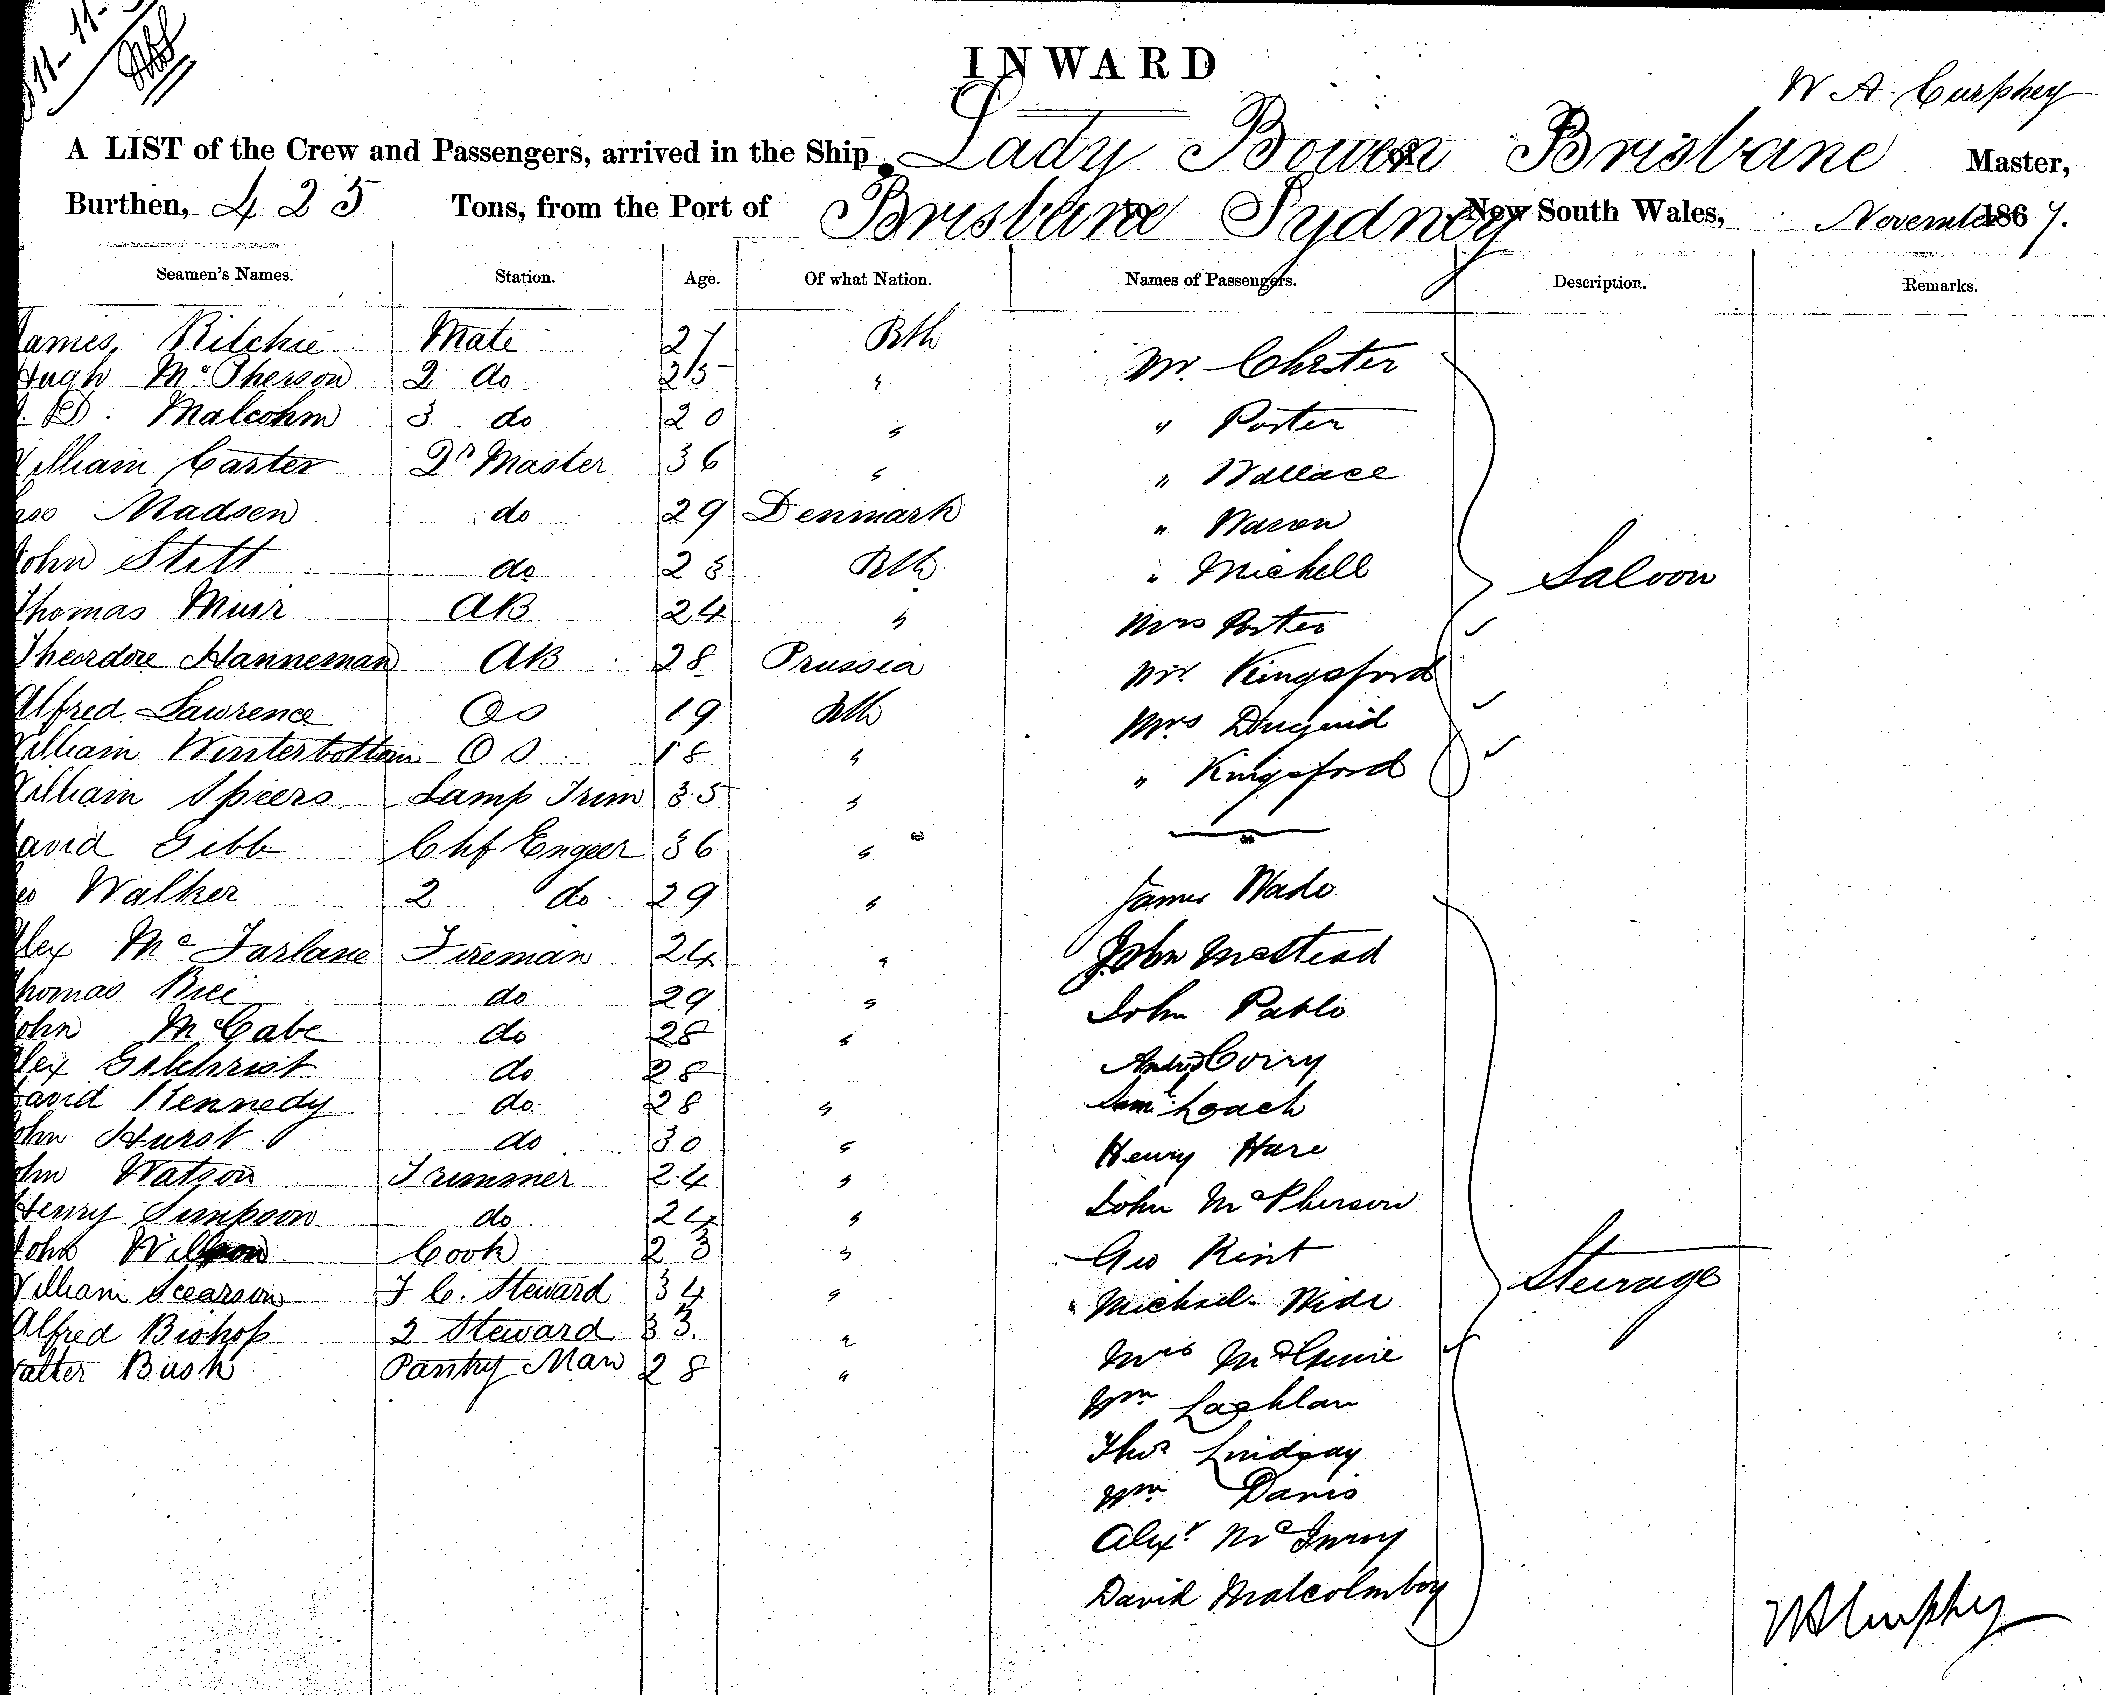 11-11-
INWARD
W A Curphey
A LIST of the Crew and Passengers, arrived in the Ship Lady Bowen of Brisbane Master,
Burthen, 425 Tons, from the Port of Brisbane to Sydney New South Wales, November 1867.
Seamen's Names. Station. Age. Of what Nation. Names of Passengers. Description. Remarks.
James Ritchie Mate 27 Bth
Hugh McPherson 2 do 25 "
D. Malcohm 3 do 20 "
William Carter Qr Master 36 "
Madsen do 29 Denmark
John Stett do 28 Bth
Thomas Muir AB 24 "
Theordore Hanneman AB 28 Prussia
Alfred Lawrence OS 19 Bth
William Winterbottom OS 18 "
William Spiers Lamp Trim 35 "
David Gibb Chf Engeer 36 "
Walker 2 do 29 "
Alex McFarlane Fireman 24 "
Thomas Bice do 29 "
John McCabe do 28 "
Alex Gilchrist do 28
David Kennedy do 28 "
John Hurst do 30 "
John Watson Trimmer 24 "
Henry Simpson do 24 "
John Willson Cook 23 "
William Scearson F C. Steward 34 "
Alfred Bishop 2 Steward 33 "
Walter Bush Pantry Man 28 "
Mr. Chester
" Porter
" Wallace
" Waron
" Michell
Saloon
Mrs Porter
Mr Kingsford
Mrs Duguid
" Kingsford
James Wade
John McStead
John Pablo
Andrw Corry
Saml Loach
Henry Hare
John McPherson
Geo Kent
Steerage
Michael Wide
Mrs McGuire
Wm Lachlan
Thos Lindsay
Wm Davis
Alexr
David Malcolm boy
W A Curphey